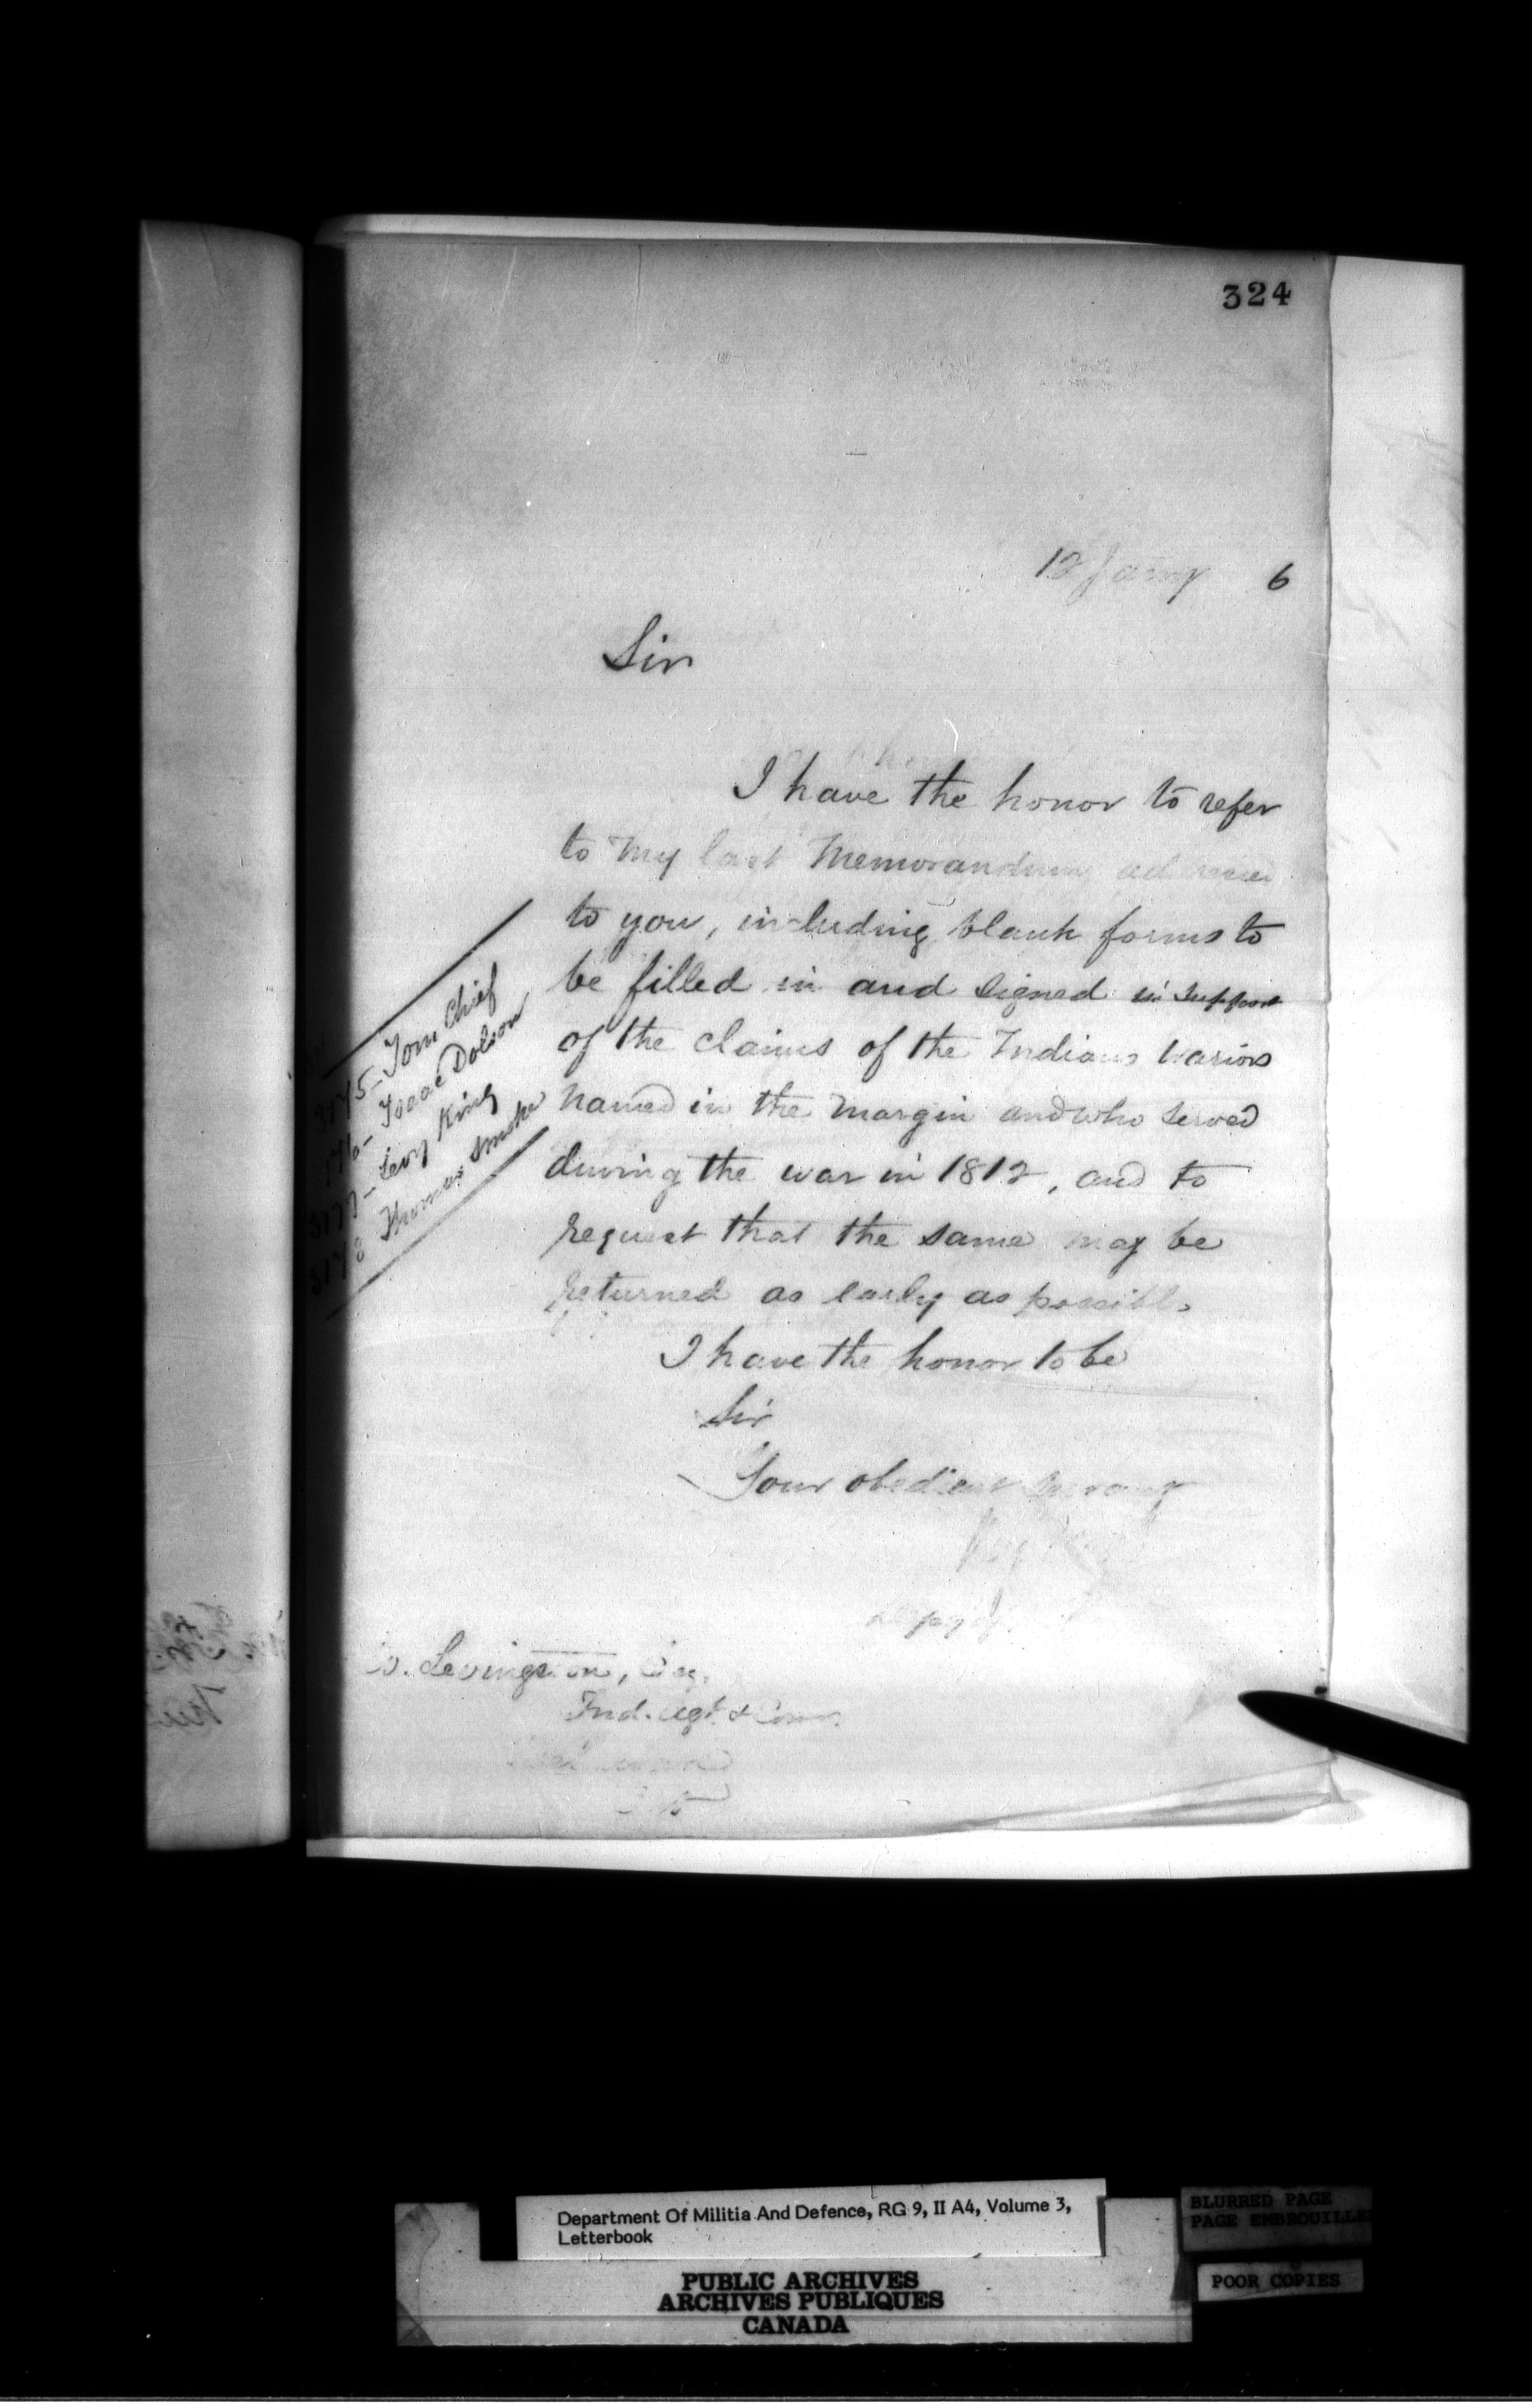 324
12 Jany 6
Sir
I have the honor to refer
to my last Memorandum
to you, including blank forms to
be filled in and signed in support
of the claims of the Indians Wariors
named in the margin and who served
during the war in 1812, and to
request that the same may be
returned as early as possible
I have the honor to be
Sir
Your obedient servant
Tom Chief
Isaac Dolson
Levy King
Thomas Smoke
Levingston, Esq.
Ind. Agt. &
Department Of Militia And Defence, RG 9, II A4, Volume 3,
Letterbook
PUBLIC ARCHIVES
ARCHIVES PUBLIQUES
CANADA
BLURRED PAGE
PAGE EMBROUILLE
POOR COPIES